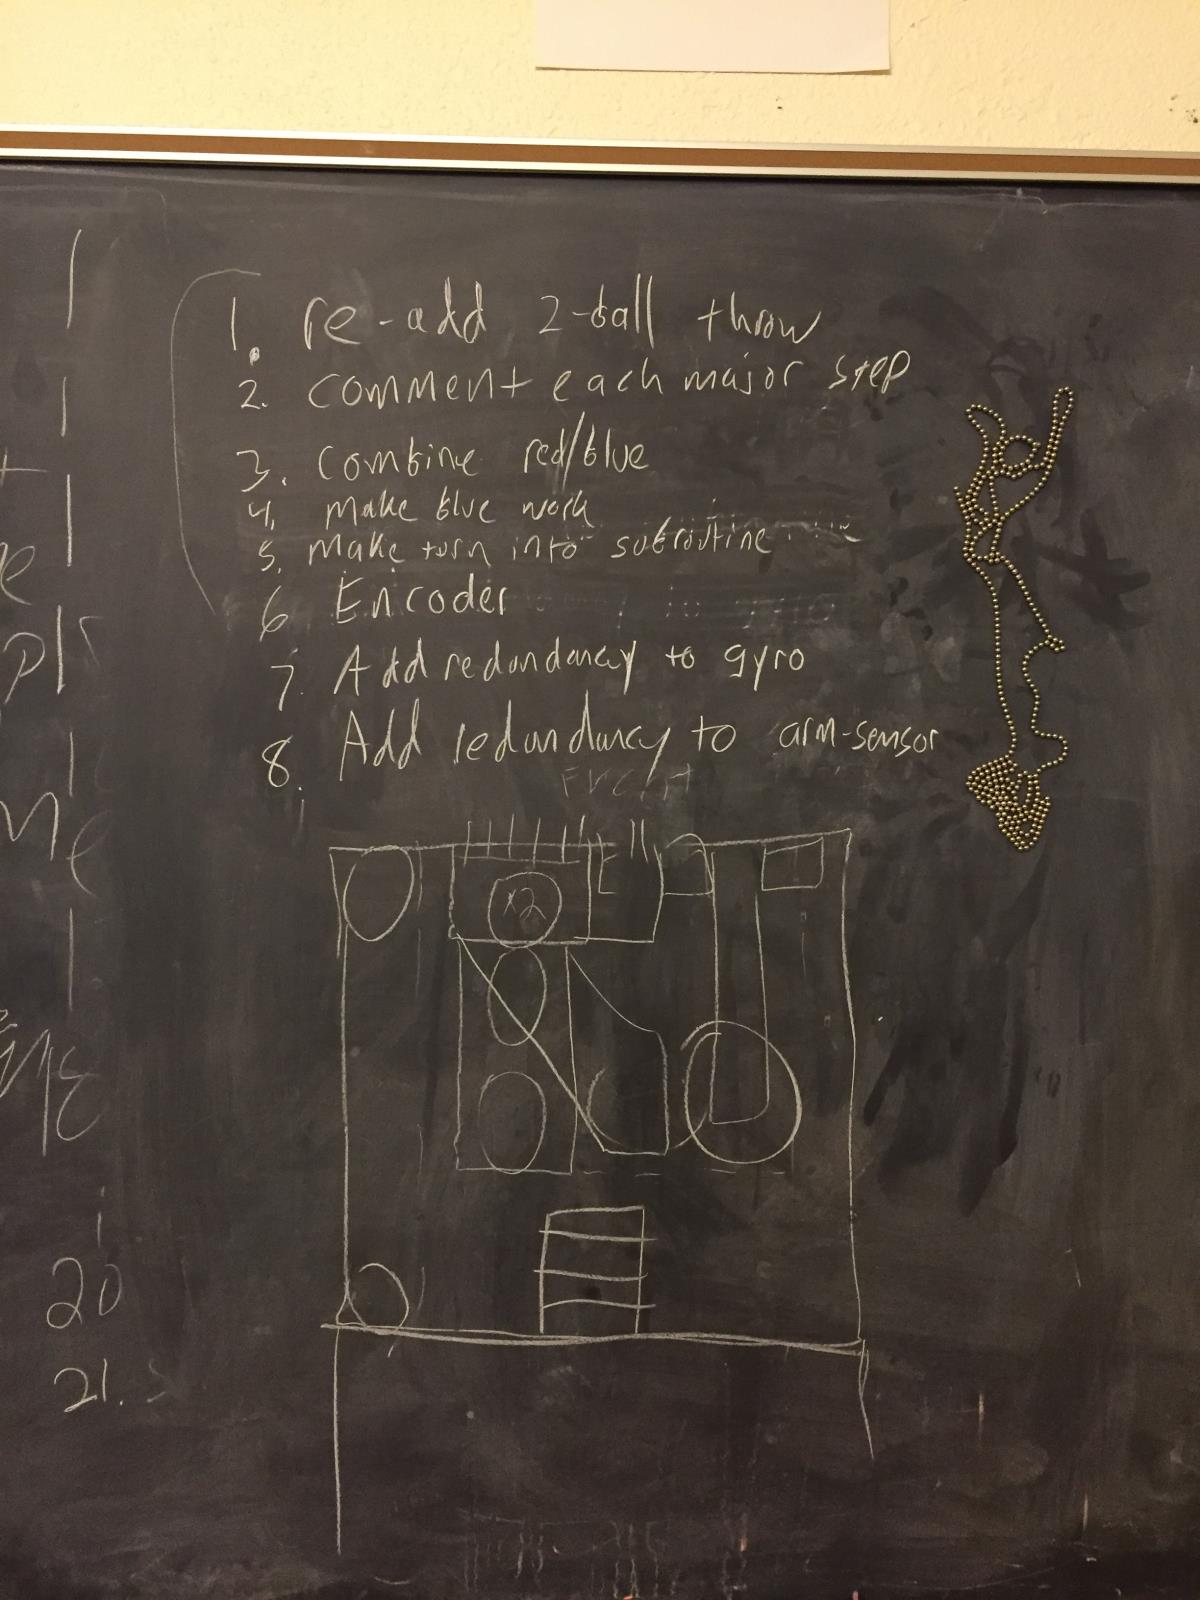 1. re-add 2-ball throw
2. comment each major step
3. combine red/blue
4. make blue work
5. make turn into subroutine
6 Encoder
7. Add redundancy to gyro
8. Add redundancy to arm-sensor
Front
x2
20
21.